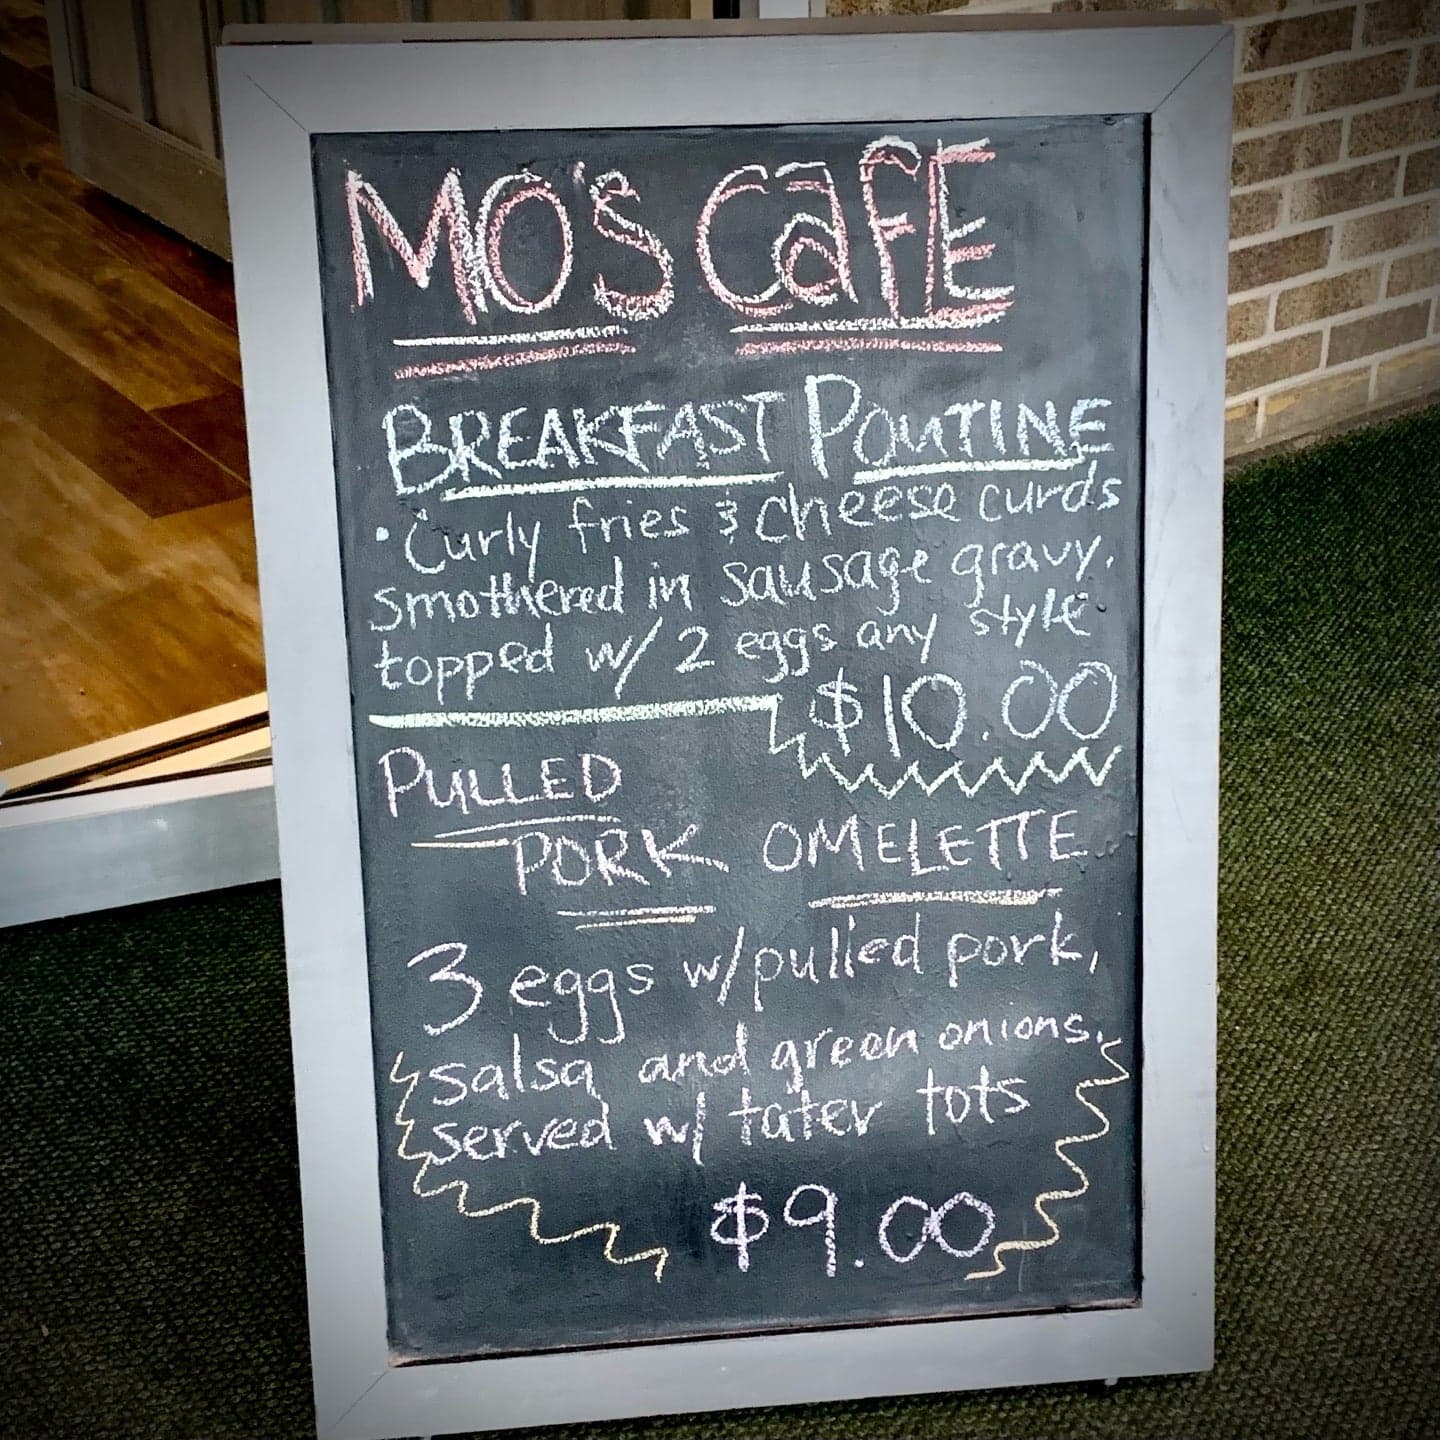 MO's CaFE
BREAKFAST POUTINE
• Curly fries & cheese curds
smothered in sausage gravy.
topped w/ 2 eggs any style
$10.00
PULLED
PORK OMELETTE
3 eggs w/pulled pork,
salsa and green onions.
served w/ tater tots
$9.00